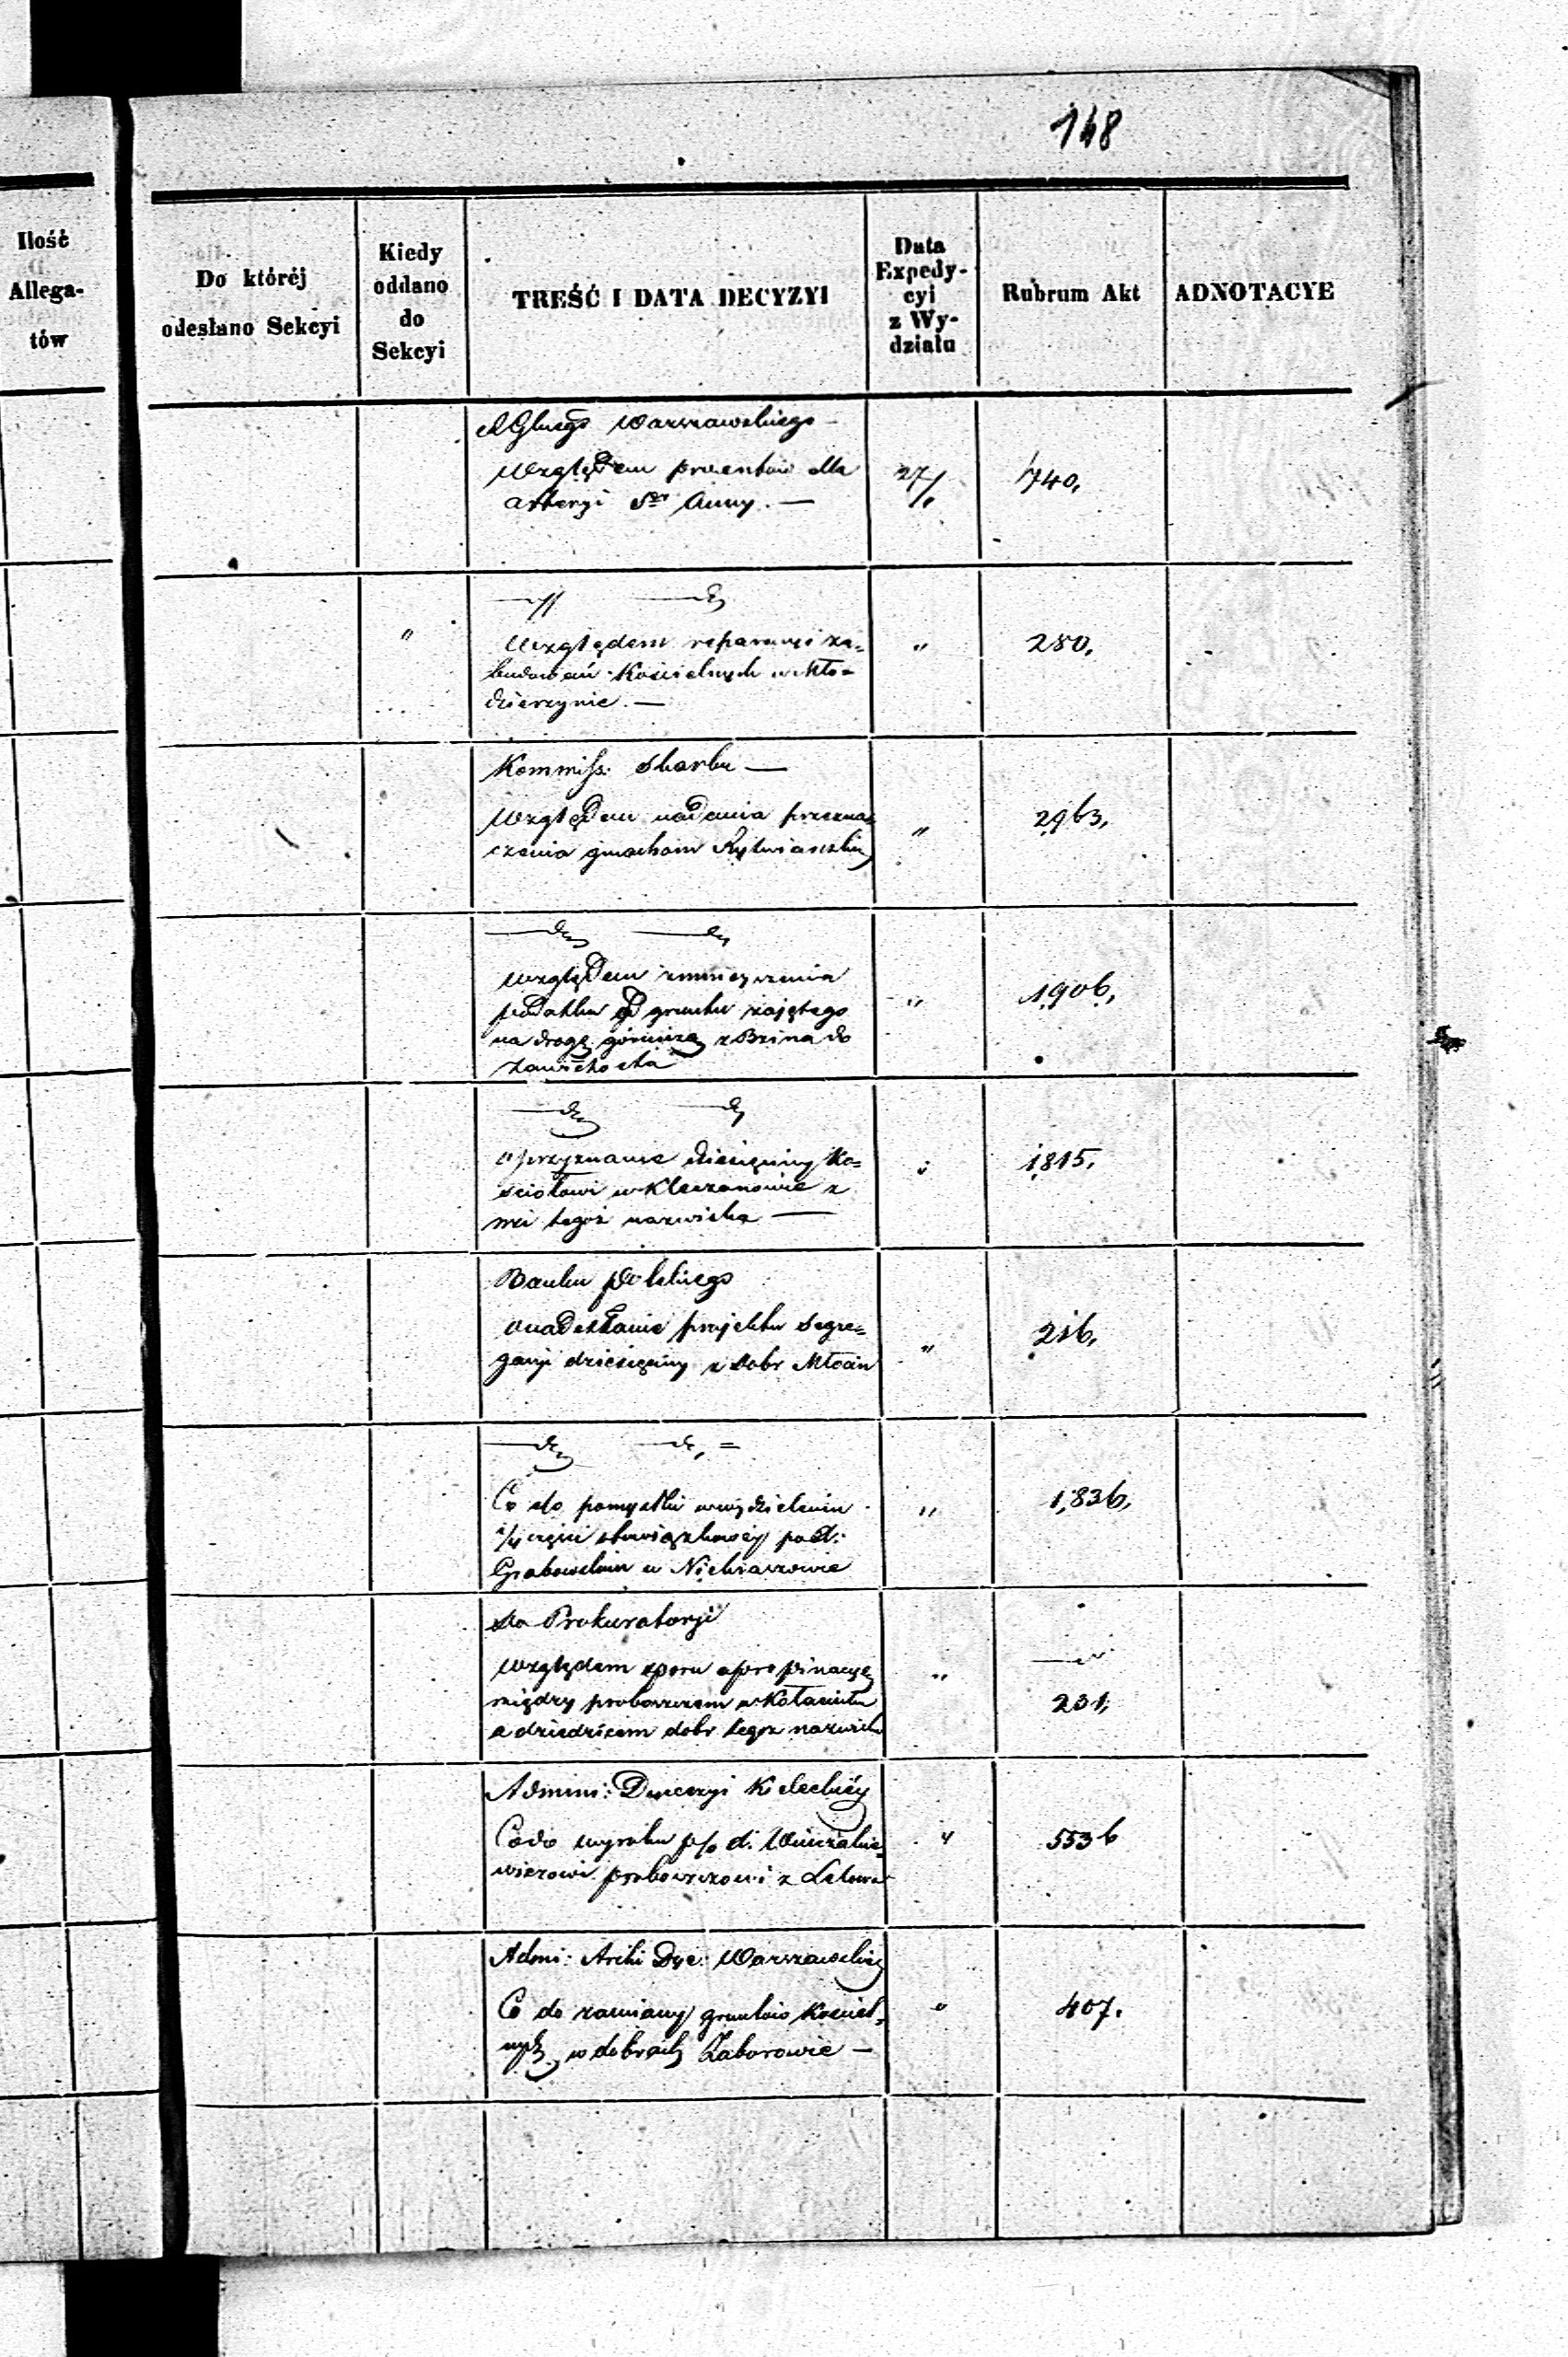 148
Ilość
Allega-
tów
Do któréj
odesłano Sekcyi
Kiedy
oddano
do
Sekcyi
TREŚĆ I DATA DECYZYI
Data
Expedy-
cyi
z Wy-
działu
Rubrum Akt
ADNOTACYE
Warszawskiego —
Względem procentów dla
Sej Anny. —
27/1
740,
Względem reparacyi za=
budowań Kościelnych w Mło=
dzierzynie. —
"
"
280,
Kommiss: Skarbu —
Względem nadania przezna=
czenia gmachom Rytwiańskim
"
2963,
względem zmniejszenia
podatku od gruntu zajętego
na drogę górniczą z Bzina do
Zawichosta
"
1906,
o przyznanie dziesięciny Ko=
ściołowi w Kleczanowie z
wsi tegoż nazwiska —
"
1815,
Banku Polskiego
o nadesłanie projektu Segre=
gacyi dziesięciny z dobr Młocin
"
216,
Co do pomyłki w wydzieleniu
1/4 części obowiązkowej po d:
Grabowskim w Niekrasowie
"
1,836,
do Prokuratoryi
względem sporu o propinacyę
między proboszczem w Kołacinku
a dziedzicem dobr tegoż nazwiska
"
231,
Admini: Dyecezyi Kieleckiéj
Co do wyroku p/o d.
wiczowi proboszczowi z
"
5536
Admi: Archi Dye: Warszawskiej
Co do zamiany gruntów Kościel=
nych w dobrach Zaborowie —
"
407.